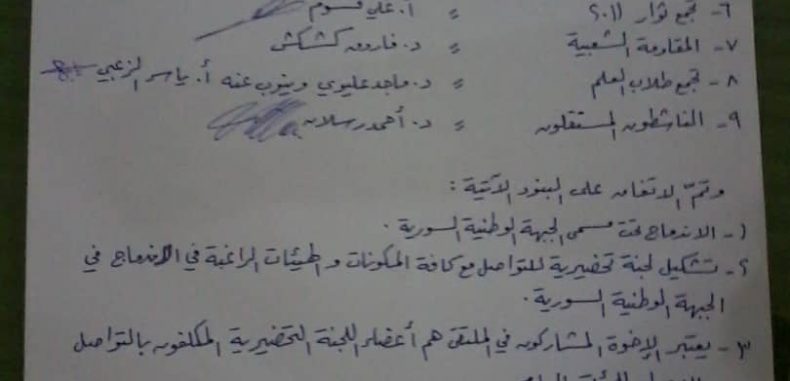 ٦- تجمع ثوار ٢٠١١ = أ. علي قسوم
٧- المقاومة الشعبية = د. فاروق كشكش
٨- تجمع طلاب العلم = د. ماجد عليوي وينوب عنه أ. ياسر الزعبي
٩- الناشطون المستقلون = د. أحمد رسلان
وتمّ الاتفاق على البنود الآتية :
١- الاندماج تحت مسمى الجبهة الوطنية السورية .
٢- تشكيل لجنة تحضيرية للتواصل مع كافة المكونات والهيئات الراغبة في الاندماج في
الجبهة الوطنية السورية .
٣- يعتبر الإخوة المشاركون في الملتقى هم أعضاء اللجنة التحضيرية المكلفون بالتواصل